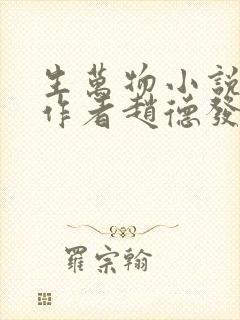 生萬物小說
作者趙德發
羅宗翰